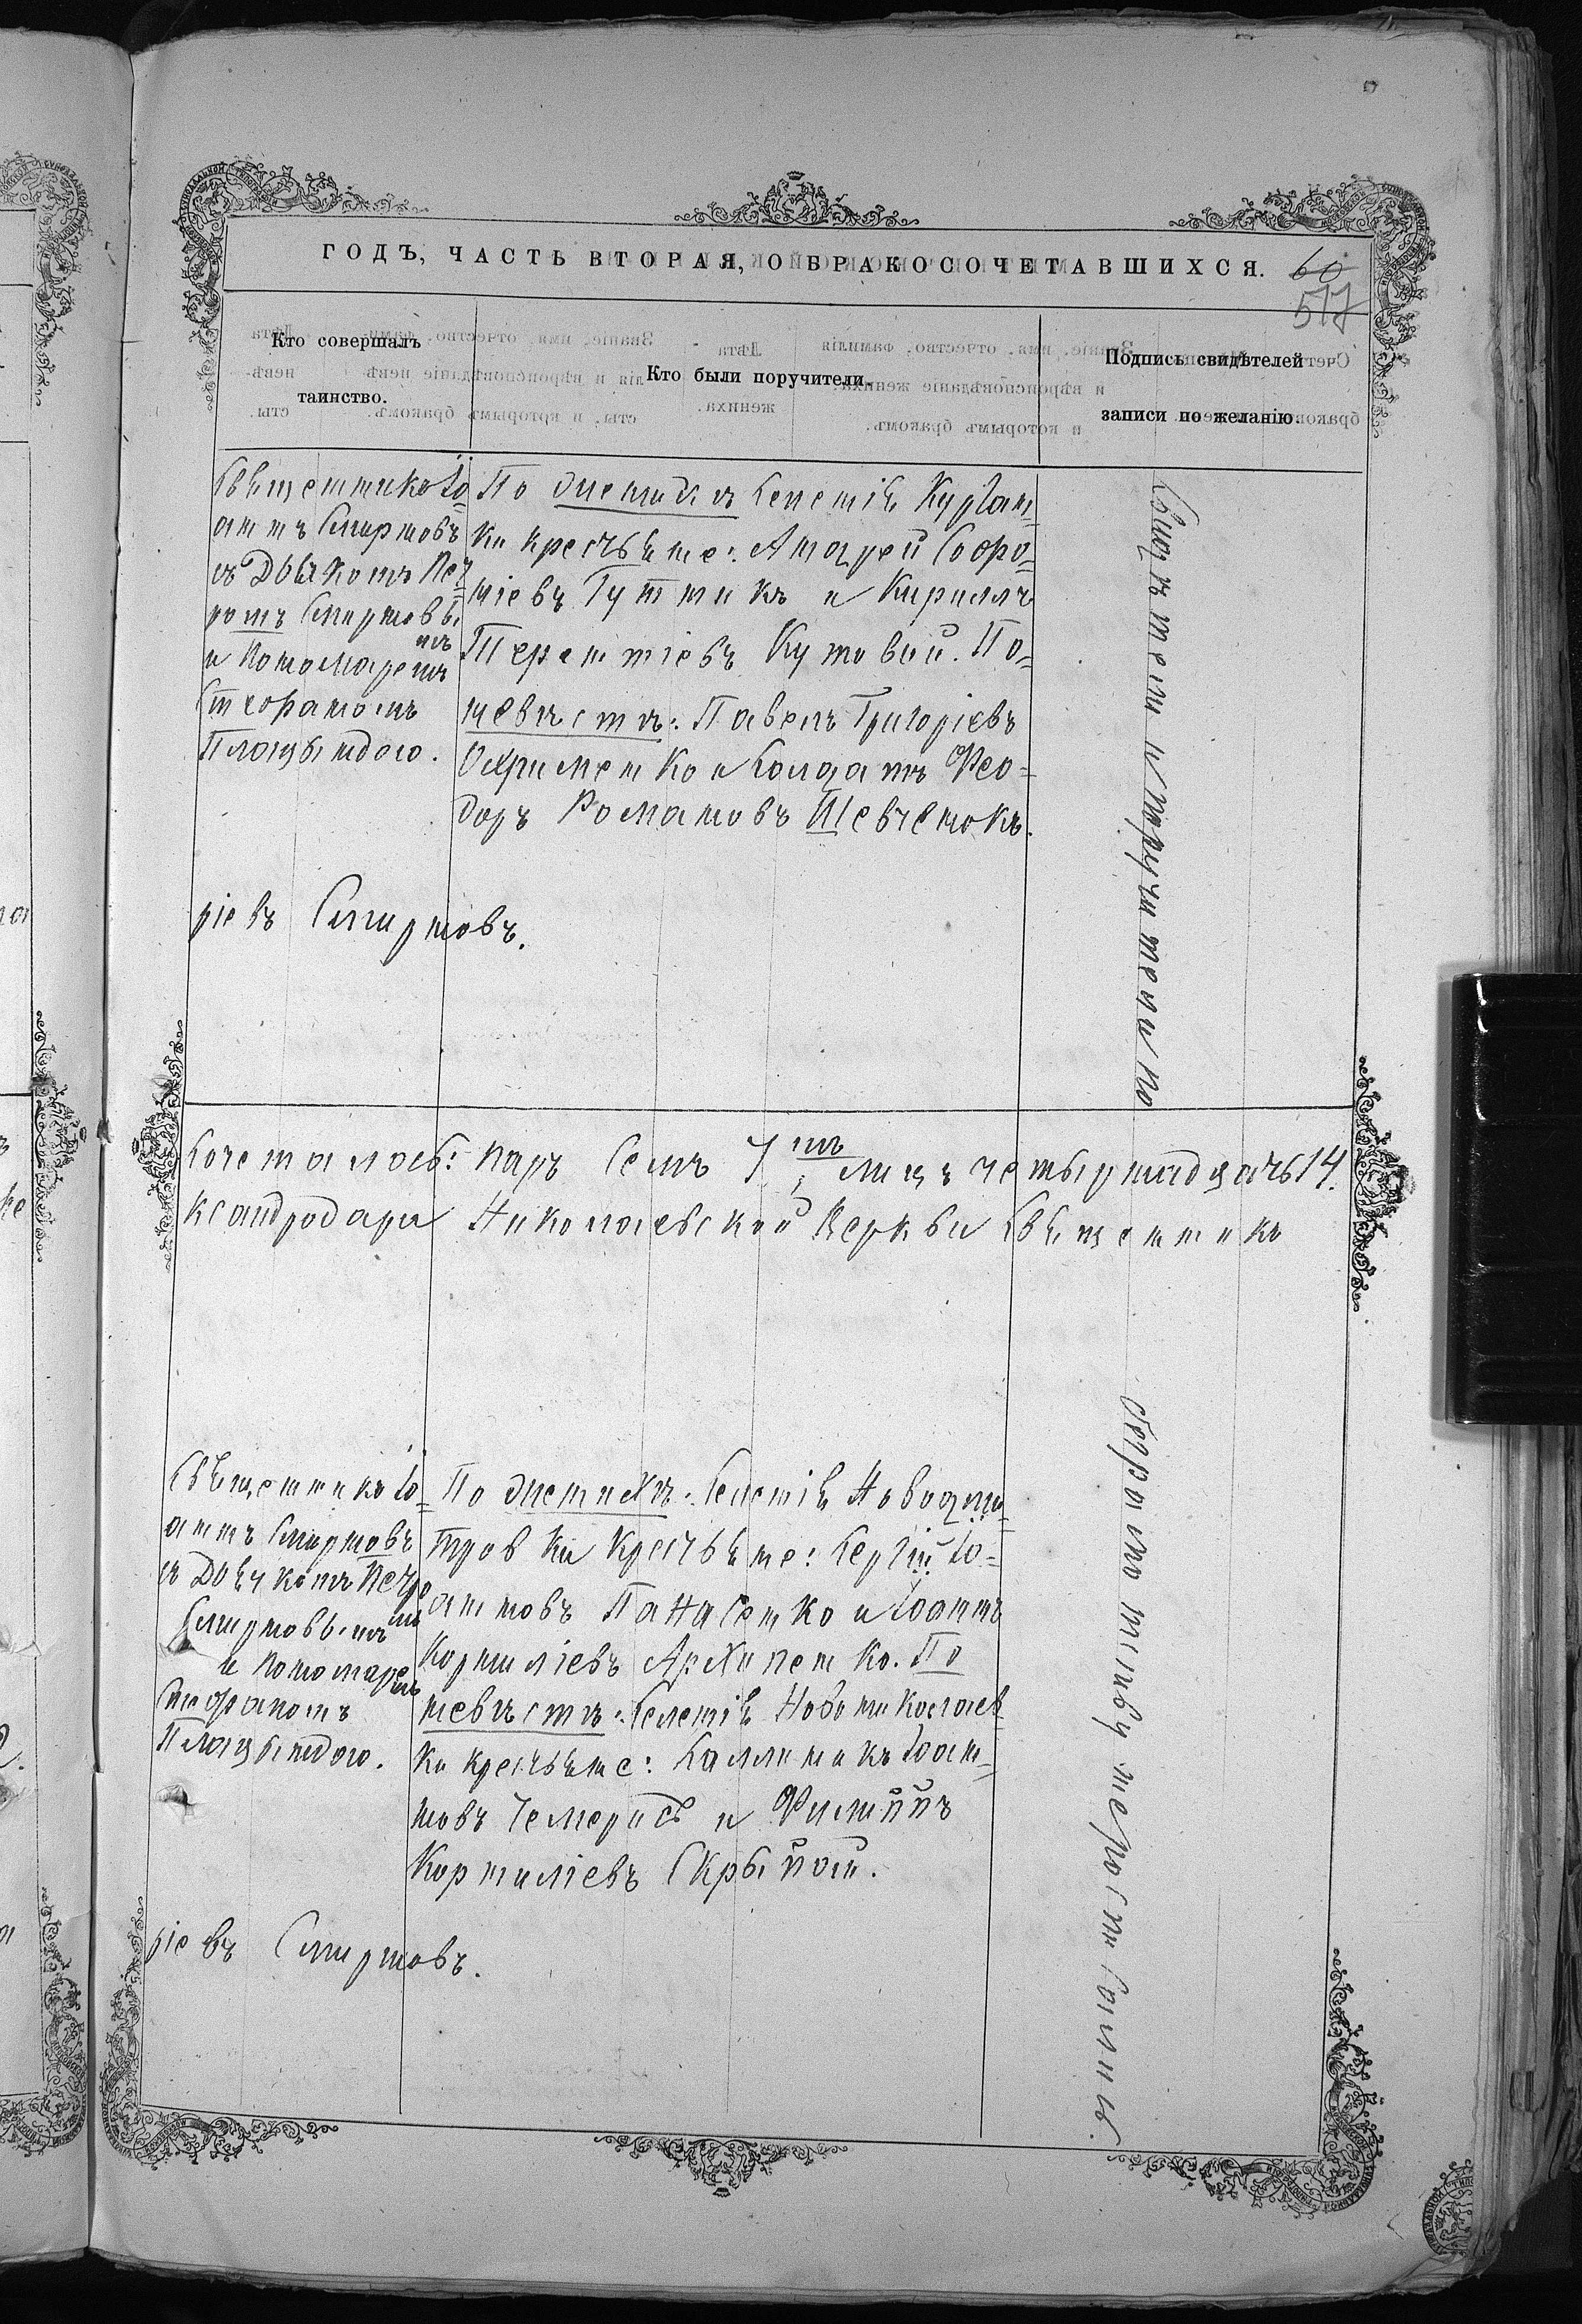 ГОДЪ, ЧАСТЬ ВТОРАЯ, О БРАКОСОЧЕТАВШИХСЯ.
60
517
Кто совершалъ
таинство.
Кто были поручители.
Подпись свидѣтелей
записи по желанію.
Священникъ Іо-
аннъ Смирновъ
съ Дьякомъ Пет-
ромъ Смирновы
мъ
и Пономаремъ
Стефаномъ
Плащындою.
По женихѣ Селенія Курган-
ки крестьяне: Андрей Софро-
ніевъ Гутникъ и Кириллъ
Терентіевъ Кутовый. По
невѣстѣ: Павелъ Григоріевъ
Охрименко и Солдатъ Фео-
доръ Романовъ Шевченокъ.
ріевъ Смирновъ.
Свидѣтели и поручители по
Сочеталось: паръ Семь 7, лицъ четырнадцать 14.
ксандродара Николаевской Церкви Священникъ
Священникъ Іо-
аннъ Смирновъ
съ Дьякомъ Петро
мъ
Смирновымъ
и Пономаремъ
Стефаномъ
Плащындою.
По женихѣ: Селенія Новодми-
тровки Крестьяне: Сергій Іо-
анновъ Панасенко и Іоаннъ
Корниліевъ Архипенко. По
невѣстѣ: Селенія Новониколаев
ки крестьяне: Каллиникъ Іоан-
новъ Чемерисъ и Филиппъ
Корниліевъ Скрыпой.
ріевъ Смирновъ.